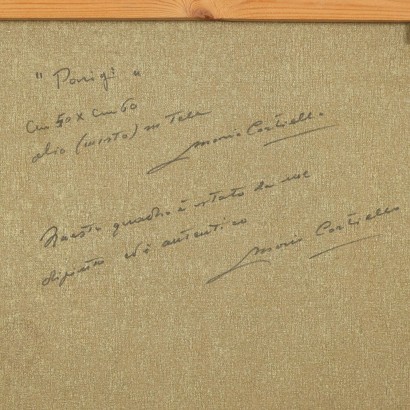 " Parigi "
cm 50 x cm 60
olio (misto) su tela
Mario Cortiello
Questo quadro è stato da me
dipinto ed è autentico
Mario Cortiello